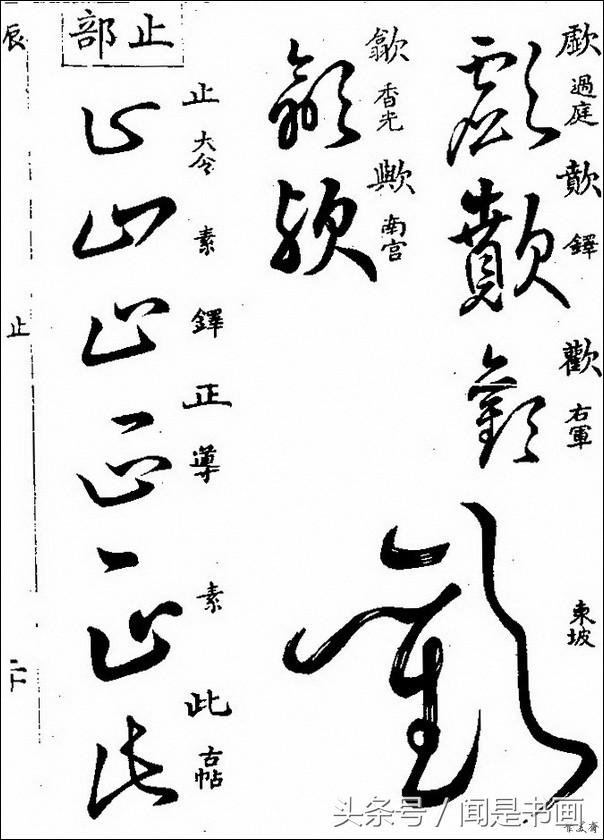 歔 過庭 歕 鐸 歡 右軍 東坡
歙 香光 歟 南宮
止部
止 大令 素 鐸 正 導 素 此 古帖
辰 止 二十
头条号 / 闻是书画